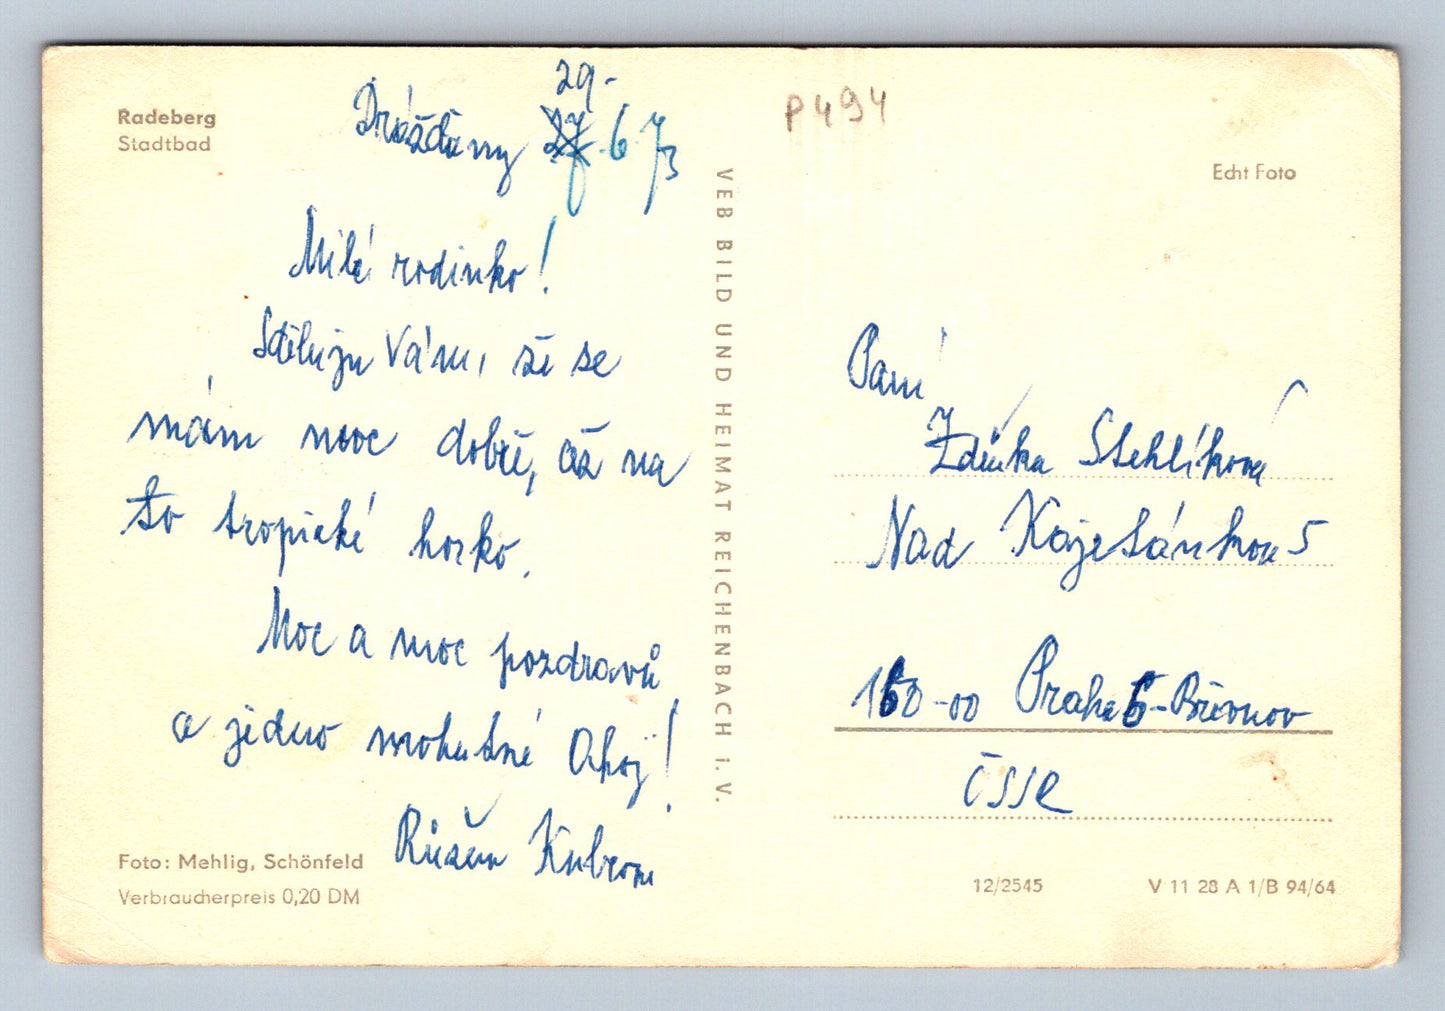 Radeberg
Stadtbad
29.
Drážďany 27. 6. 73
Milá rodinko!
Sděluji Vám, že se
mám moc dobře, až na
to tropické horko.
Moc a moc pozdravů
a jedno mohutné Ahoj!
Foto: Mehlig, Schönfeld
Verbraucherpreis 0,20 DM
VEB BILD UND HEIMAT REICHENBACH i. V.
P494
Echt Foto
Paní
Zdeňka Stehlíková
Nad Kajetánkou 5
160-00 Praha 6-Břevnov
ČSSR
12/2545
V 11 28 A 1/B 94/64